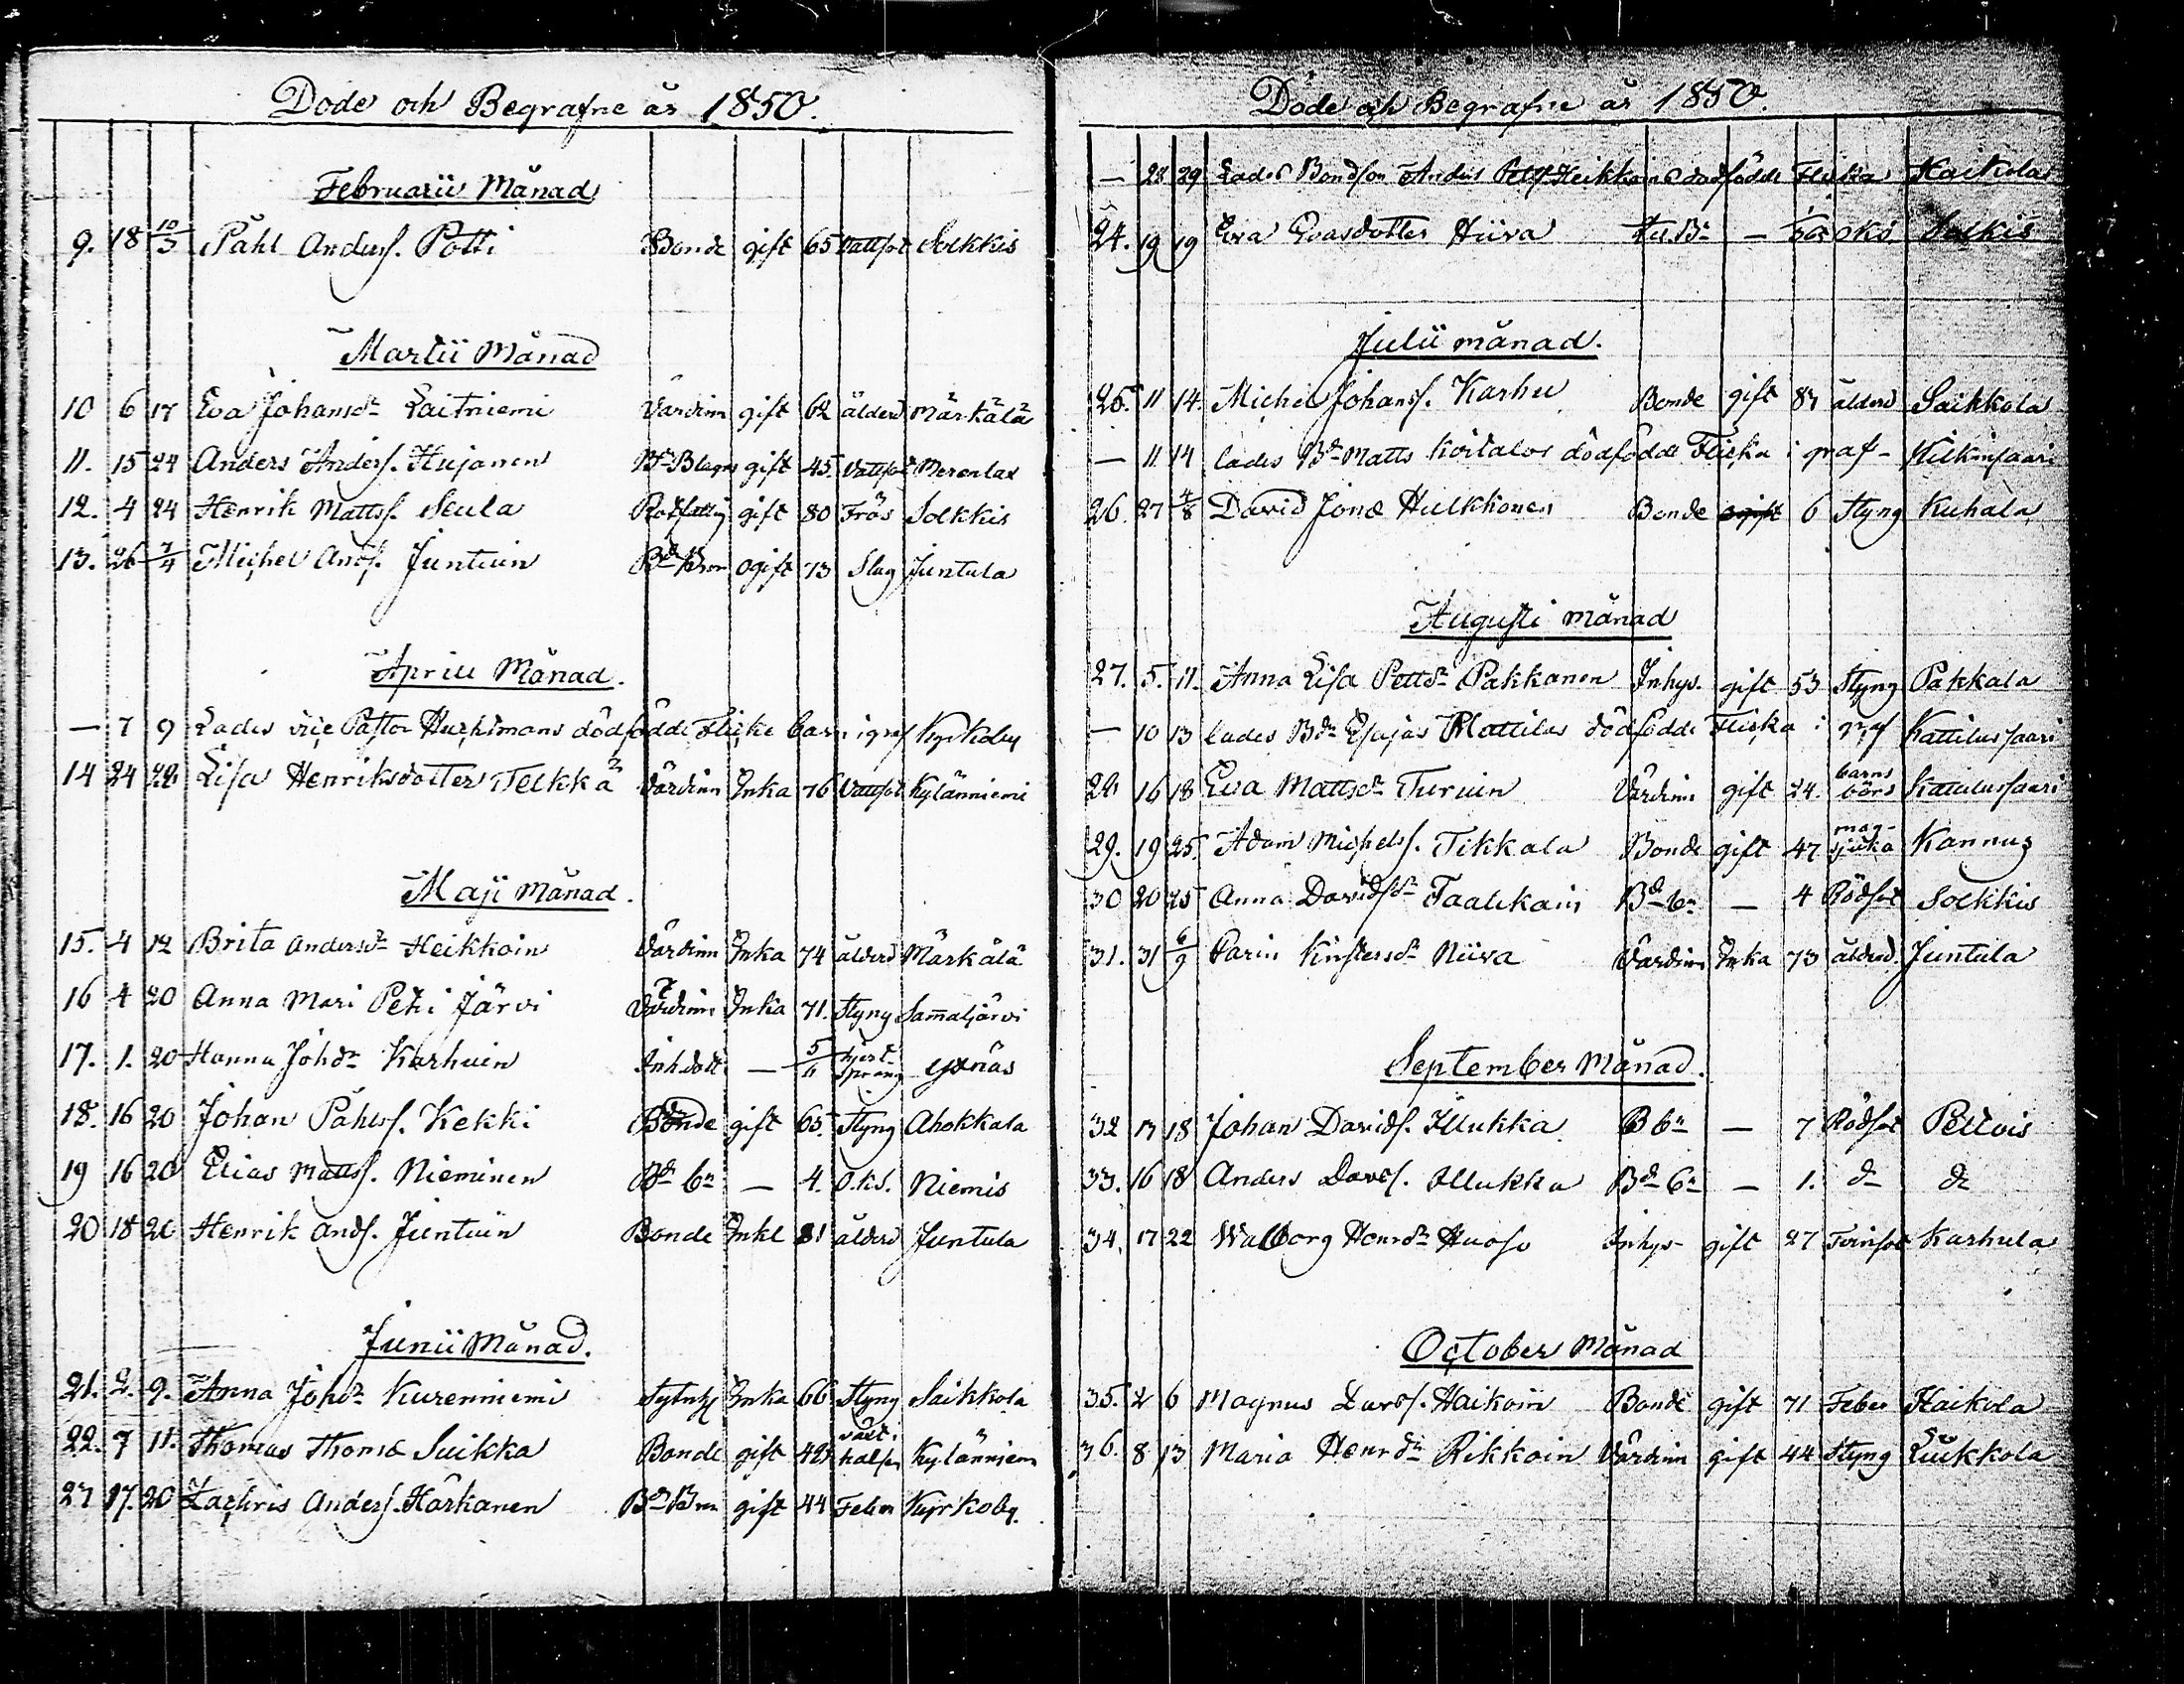 Döde och Begrafne år 1850.
Februarii Månad
9. 18 10/3 Påhl Andersſ. Potti Bonde gift 65 Vattſot Solkkis
Martii Månad
10 6 17 Eva Johansdr Laitniemi Värdinn gift 62 ålderd Märkälä
11. 15 24 Anders Andersſ. Hujanen gift 45. Vattſot Merenlax
12. 4 24 Henrik Mattsſ. Seula Rotfattig gift 80 Frås Solkkis
13. 26 7/4 Michel Andſ. Juntuin Bd Bror Ogift 73 Slag Juntula
Aprill Månad.
— 7 9 Lades vice Pastor dödfödde Flicke barn i graf Kyrkoby
14 24 28 Lisa Henriksdotter Telkkä Värdinn Enka 76 Vattſot Kylänniemi
Maji Månad.
15. 4 12 Brita Andersdr Heikkoin Värdinn Enka 74 ålderd Märkälä
16 4 20 Anna Mari Petri Järvi Värdinn Enka 71. Styng Samaljärvi
17. 1. 20 Hanna Johdr Karhuin Inh.dott — 5/11 hjert språng Yxnäs
18. 16 20 Johan Påhlsſ. Kekki Bonde gift 65. Styng Ahokkala
19 16 20 Elias Mattsſ. Nieminen Bd bn — 4. O.k.s. Niemis
20 18 20 Henrik Andſ. Juntuin Bonde Enkl 81 ålderd Juntula
Junii Månad.
21. 2. 9. Anna Johdr Kurenniemi Enka 66 Styng Saikkola
22. 7 11. Thomas Thomæ Suikka Bonde gift 42 växt i halsen Kylänniem
23 17. 20 Zachris Andersſ. Härkänen Bd Bror gift 44 Feber Kyrkoby.
Döde och Begrafne år 1850.
— 28 29 Lades Bondson Anders Heikkoins dödfödde Flicka Haikola
24. 19 19 Eva Evasdotter Hiiva — oks Solkkis
Julii månad.
25. 11 14. Michel Johansſ. Karhu Bonde gift 87 ålderd Saikkola
— 11 14 lades Bd Matts Koitalos dödfödde Flicka i graf - Kilkinsaari
26. 27 4/8 David Jonæ Hulkkonen Bonde ogift 6 Styng Kuhala
Augusti månad
27. 5. 11. Anna Lisa Pettdr Pakkanen Inhys. gift 53 Styng Pakkala
— 10 13 lades Bdn Esajas Mattilas dödfödde Flicka i graf Kattilussaari
28 16 18 Eva Mattsdr Turuin Värdinn gift 24. barns börd Kattilussaari
29. 19 25. Adam Michelsſ. Tikkala Bonde gift 47 mag-sjuka Kannus
30 20 25 Anna Davidsdr Taalikain Bd bn — 4 Rödſot Solkkis
31. 31 6/9 Carin Kristersdr Niiva Värdinn Enka 73 ålderd. Juntula
September Månad.
32 13 18 Johan Davidſ. Illukka B bn — 7 Rödſot Pellvis
33. 16 18 Anders Davdſ. Illukka Bd bn — 1. do do
34. 17 22 Walborg Henrdr Huoso Inhys- gift 27 Tvinſot Karhula
October Månad
35. 2 6 Magnus Larsſ. Haikoin Bonde gift 71 Feber Haikola
36. 8 13 Maria Henrdr Rikkoin Värdinn gift 44 Styng Luukkola